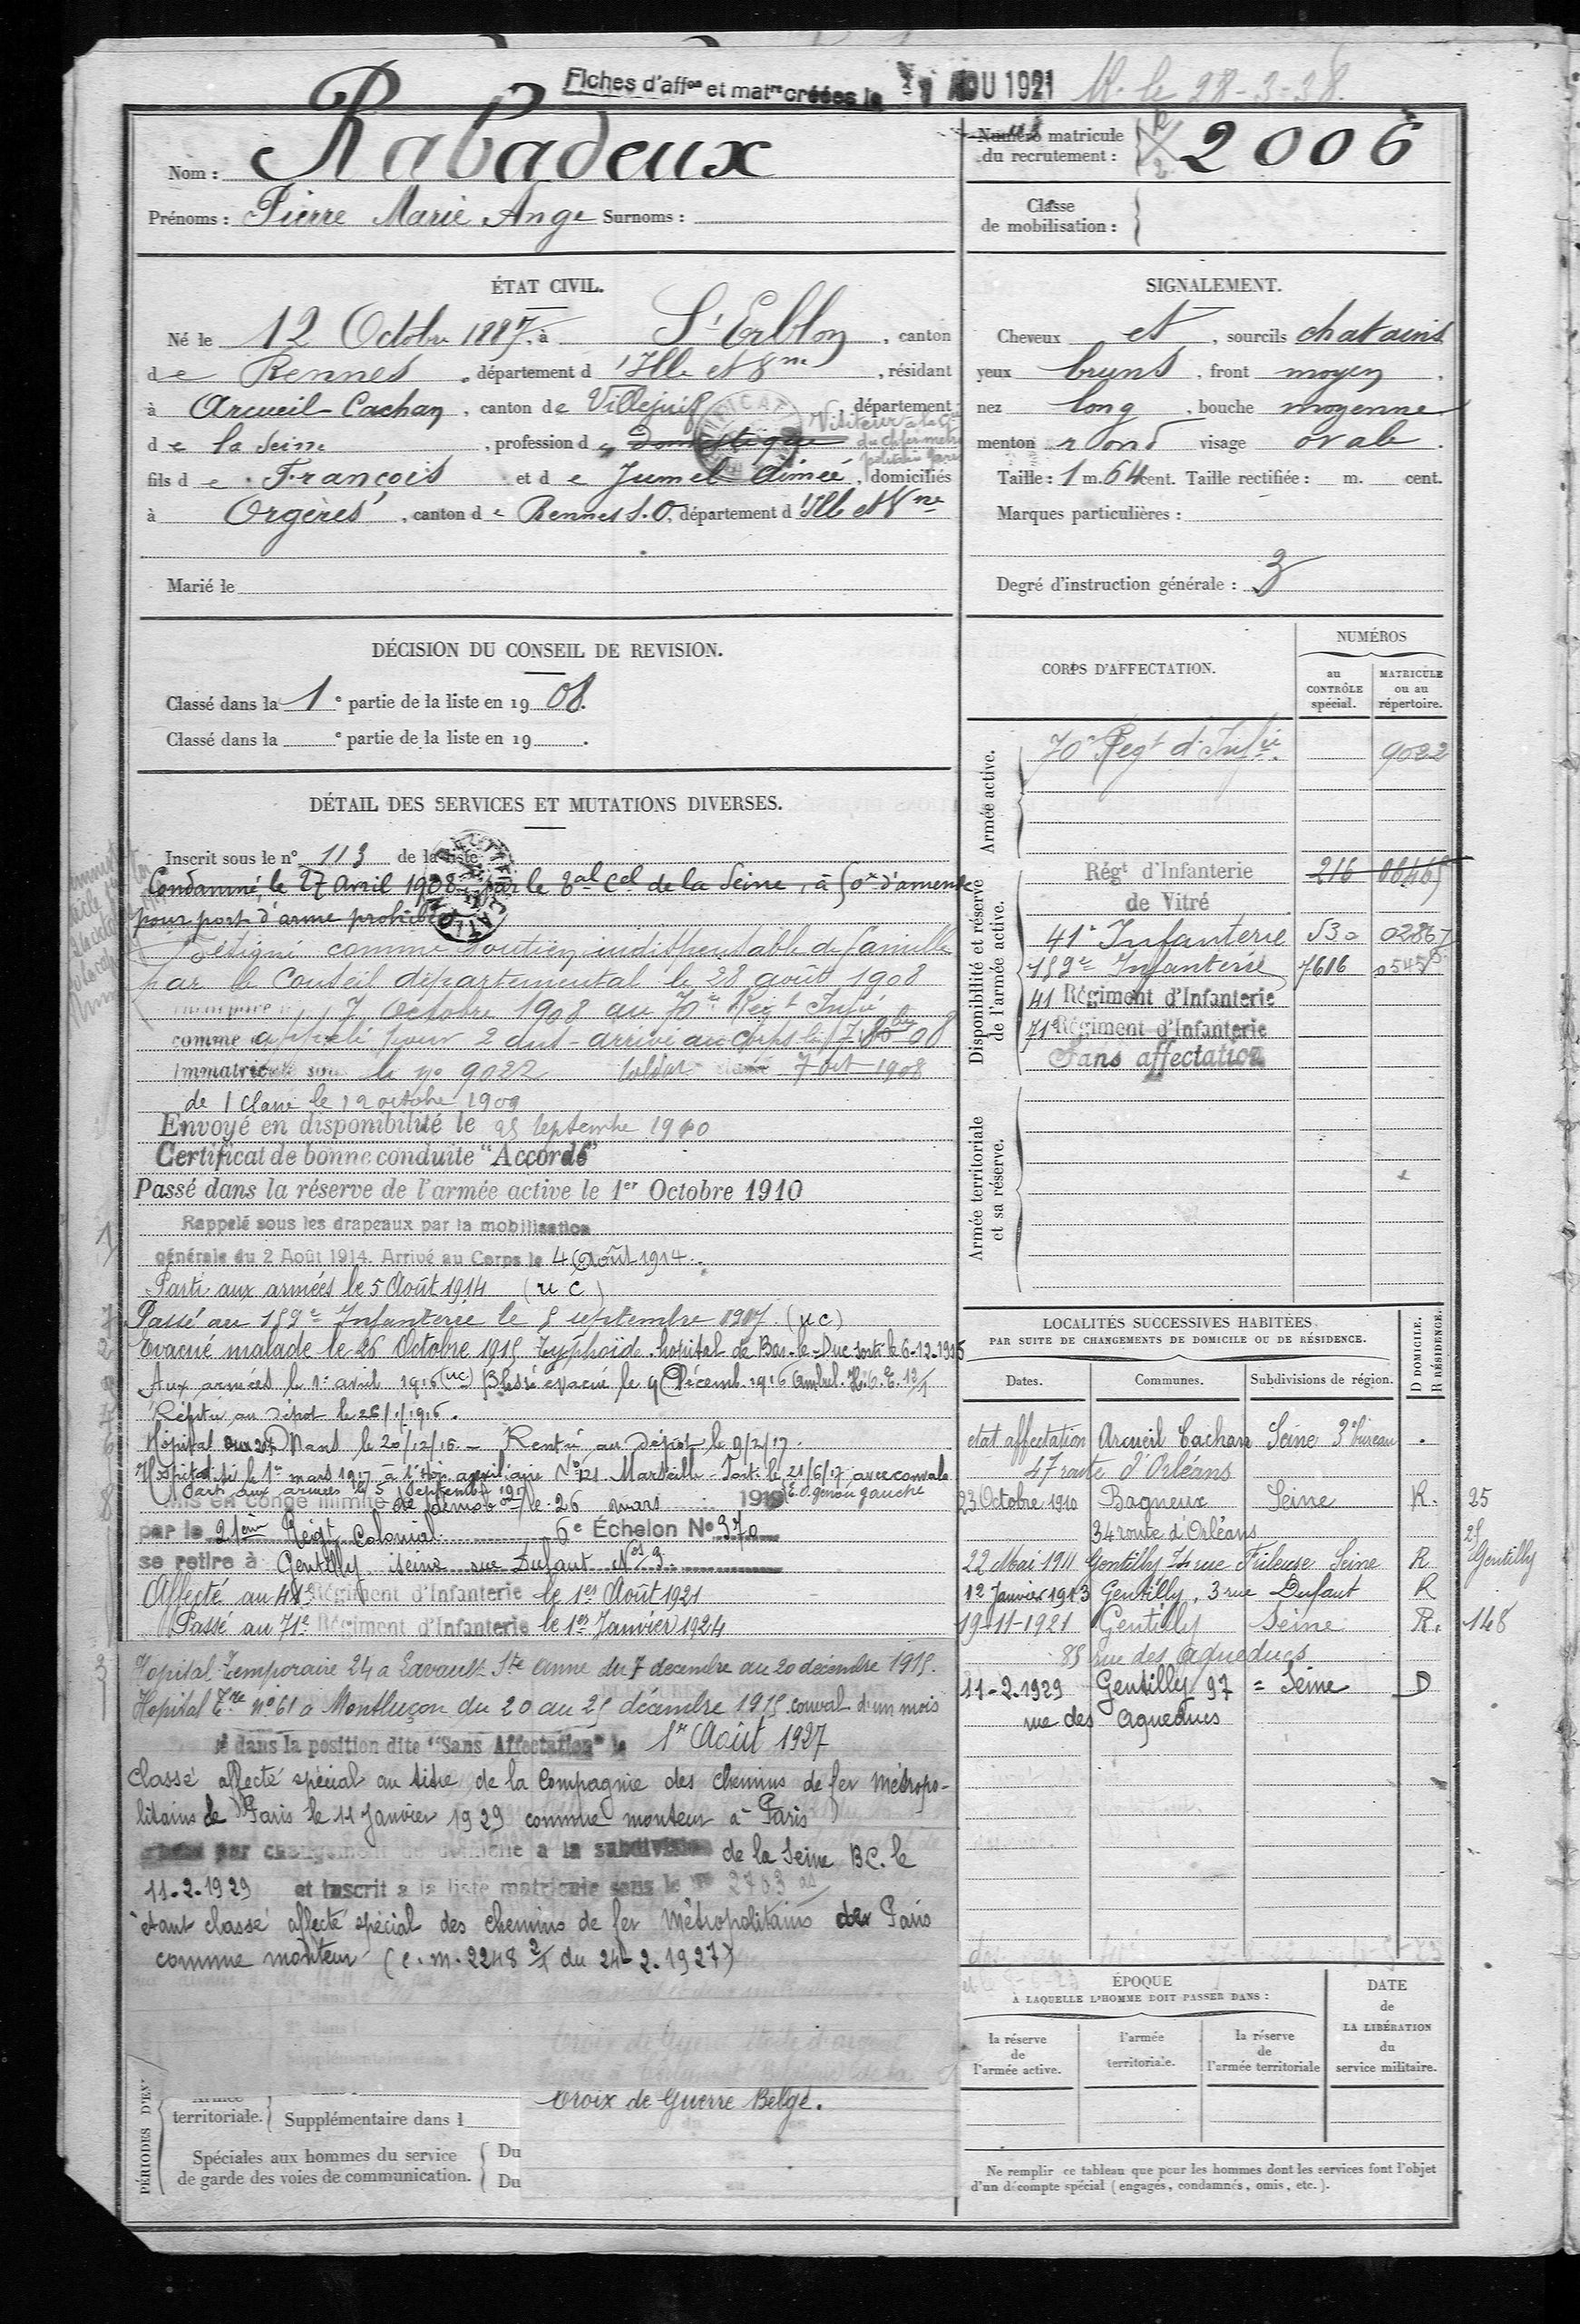 Fiches d'aff^on et mat^re créées le 1 AOU 1921 R. le 28-3-38.
Nom : Rabadeux
Prénoms : Pierre Marie Ange Surnoms :
Numéro matricule du recrutement : 2006
Classe de mobilisation :
ÉTAT CIVIL.
Né le 12 Octobre 1887, à St Erblon, canton
de Rennes, département d'Ille et V^ne, résidant
à Arcueil-Cachan, canton de Villejuif, département
de la Seine, profession de domestique Visiteur à la C^ie du ch fer métropolitain
fils de François et de Jumel Aimée, domiciliés
à Orgères, canton de Rennes S.O, département d'Ille et V^ne
Marié le
SIGNALEMENT.
Cheveux et, sourcils chatains
yeux bruns, front moyen,
nez long, bouche moyenne
menton rond visage ovale.
Taille : 1 m. 64 cent. Taille rectifiée : m. cent.
Marques particulières :
Degré d'instruction générale : 3
DÉCISION DU CONSEIL DE REVISION.
Classé dans la 1^e partie de la liste en 1908.
Classé dans la ^e partie de la liste en 19 .
DÉTAIL DES SERVICES ET MUTATIONS DIVERSES.
Inscrit sous le n° 113 de la liste
Condamné, le 27 Avril 1908 par le t^al c^el de la Seine, à 50^x d'amende
pour port d'arme prohibée
Désigné comme soutien indispensable de famille
par le Conseil départemental le 28 août 1908
7 Octobre 1908 au 70^e Rég^t Inf^ie
comme appelé pour 2 ans - arrivé au corps le 7 8^bre 08
Immatriculé sous le n° 9022 soldat 7 oct 1908
de 1 classe le 12 octobre 1909
Envoyé en disponibilité le 25 septembre 1910
Certificat de bonne conduite "Accordé"
Passé dans la réserve de l'armée active le 1^er Octobre 1910
Rappelé sous les drapeaux par la mobilisation
générale du 2 Août 1914. Arrivé au Corps le 4 Août 1914.
Parti aux armées le 5 Août 1914 (u c)
Passé au 159^e Infanterie le 5 septembre 1917. (u c)
Evacué malade le 26 Octobre 1915 Typhoïde. hopital de Bar-le-Duc sorti le 6-12-1915
Aux armées le 1^e avril 1916 (uc) Blessé évacué le 9 Décemb. 1916 Ambul. H.O.E. 13/1
au dépot le 26/1/1916.
Hôpital Mans le 20/12/16 - Rentré au Dépôt le 9/2/17.
Hospitalisé le 1^er mars 1917 à l'Hôp. auxiliaire N° 121 Marseille - Sorti le 21/6/17 avec convale
Parti aux armées le 5 septembre 1917 E.O. genou gauche
Mis en congé illimité de démob^on le 26 mars 1919
par le 21^ème Régt Colonial 6^e Échelon N° 370
se retire à Gentilly Seine rue Dufaut N^os 3
Affecté au 41^e Régiment d'Infanterie le 1^er Août 1921
Passé au 71^e Régiment d'Infanterie le 1^er Janvier 1924
Hopital Temporaire 24 a Lavault Ste Anne du 7 décembre au 20 décembre 1915.
Hopital T^re n° 61 a Montluçon du 20 au 25 décembre 1915 conval d'un mois
é dans la position dite "Sans Affectation" le 1^er Août 1927
Classé affecté spécial au titre de la Compagnie des chemins de fer métropo-
litains de Paris le 11 Janvier 1929 comme monteur à Paris
par changement de domicile a la subdivision de la Seine BC. le
11-2-1929 et inscrit a la liste matricule sous le n° 2703
étant classé affecté spécial des chemins de fer Métropolitains de Paris
comme monteur (c.m. 2248 2/1 du 24-2-1927)
CORPS D'AFFECTATION.
NUMÉROS
au CONTRÔLE spécial.
MATRICULE ou au répertoire.
Armée active.
70^e Régt d'Inf^ie. 9022
Disponibilité et réserve de l'armée active.
Rég^t d'Infanterie 216 06465
de Vitré
41^e Infanterie 530 02867
159^e Infanterie 7616
41 Régiment d'Infanterie
71^e Régiment d'Infanterie
Sans affectation
Armée territoriale et sa réserve.
LOCALITÉS SUCCESSIVES HABITÉES
PAR SUITE DE CHANGEMENTS DE DOMICILE OU DE RÉSIDENCE.
D DOMICILE. R RÉSIDENCE.
Dates. Communes. Subdivisions de région.
etat affectation Arcueil Cachan Seine 3^e bureau
47 route d'Orléans
23 Octobre 1910 Bagneux Seine R. 25
34 route d'Orléans
22 Mai 1911 Gentilly 74 rue Frileuse Seine R Gentilly
12 Janvier 1913 Gentilly, 3 rue Dufaut R
19-11-1921 Gentilly Seine R. 148
85 rue des aqueducs
11-2-1929 Gentilly 97 = Seine D
rue des Aqueducs
ÉPOQUE
À LAQUELLE L'HOMME DOIT PASSER DANS :
la réserve de l'armée active.
l'armée territoriale.
la réserve de l'armée territoriale
DATE de LA LIBÉRATION du service militaire.
Ne remplir ce tableau que pour les hommes dont les services font l'objet
d'un décompte spécial (engagés, condamnés, omis, etc.).
PÉRIODES D'EX
Armée territoriale. Supplémentaire dans l
Spéciales aux hommes du service
de garde des voies de communication.
Du
Du
Croix de Guerre Belge.